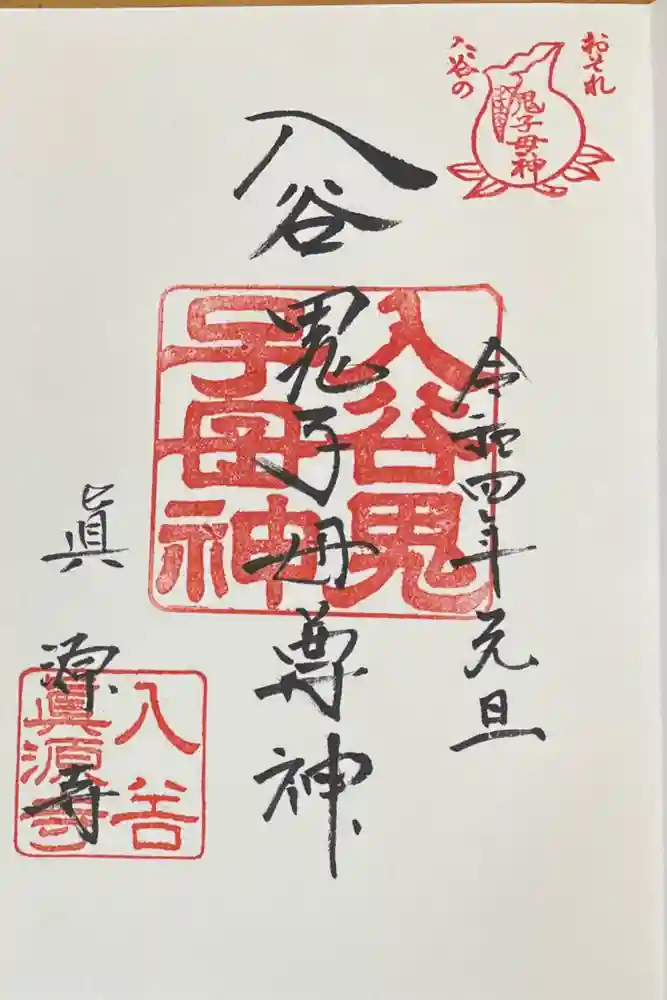 おそれ
入谷の
鬼子母神
令和四年元旦
入谷鬼子母尊神
入谷鬼
子母神
眞源寺
入谷
眞源寺